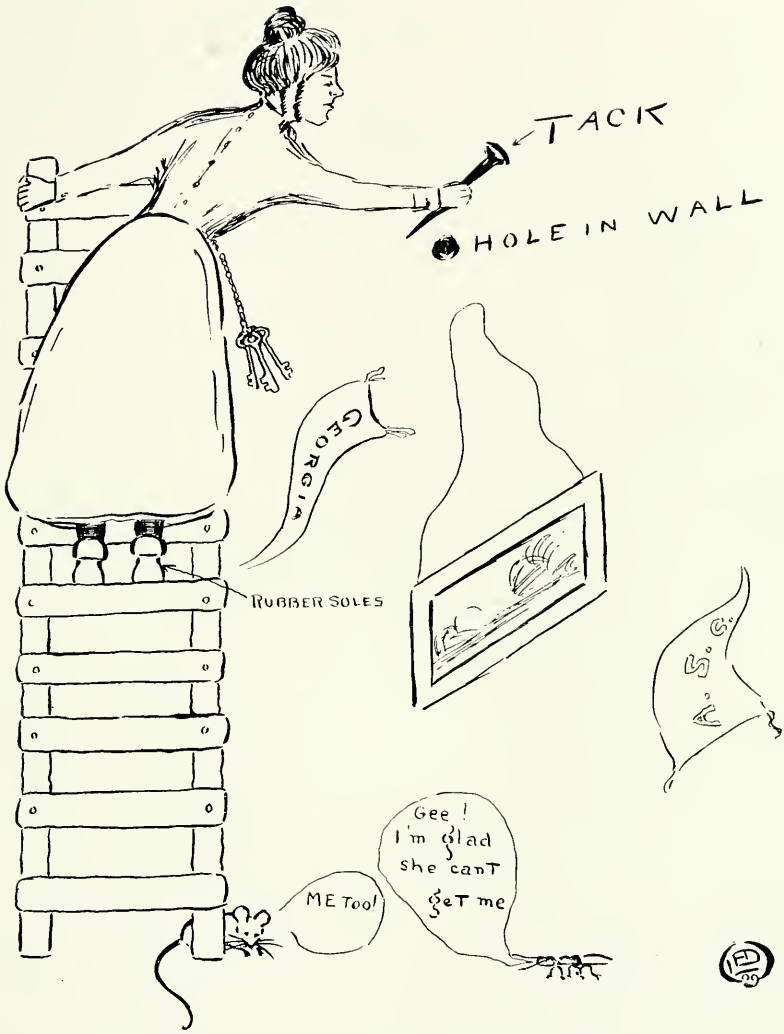 TACK
HOLE IN WALL
GEORGIA
RUBBER SOLES
A.S.C.
Gee!
I'm glad
she can't
get me
ME Too!